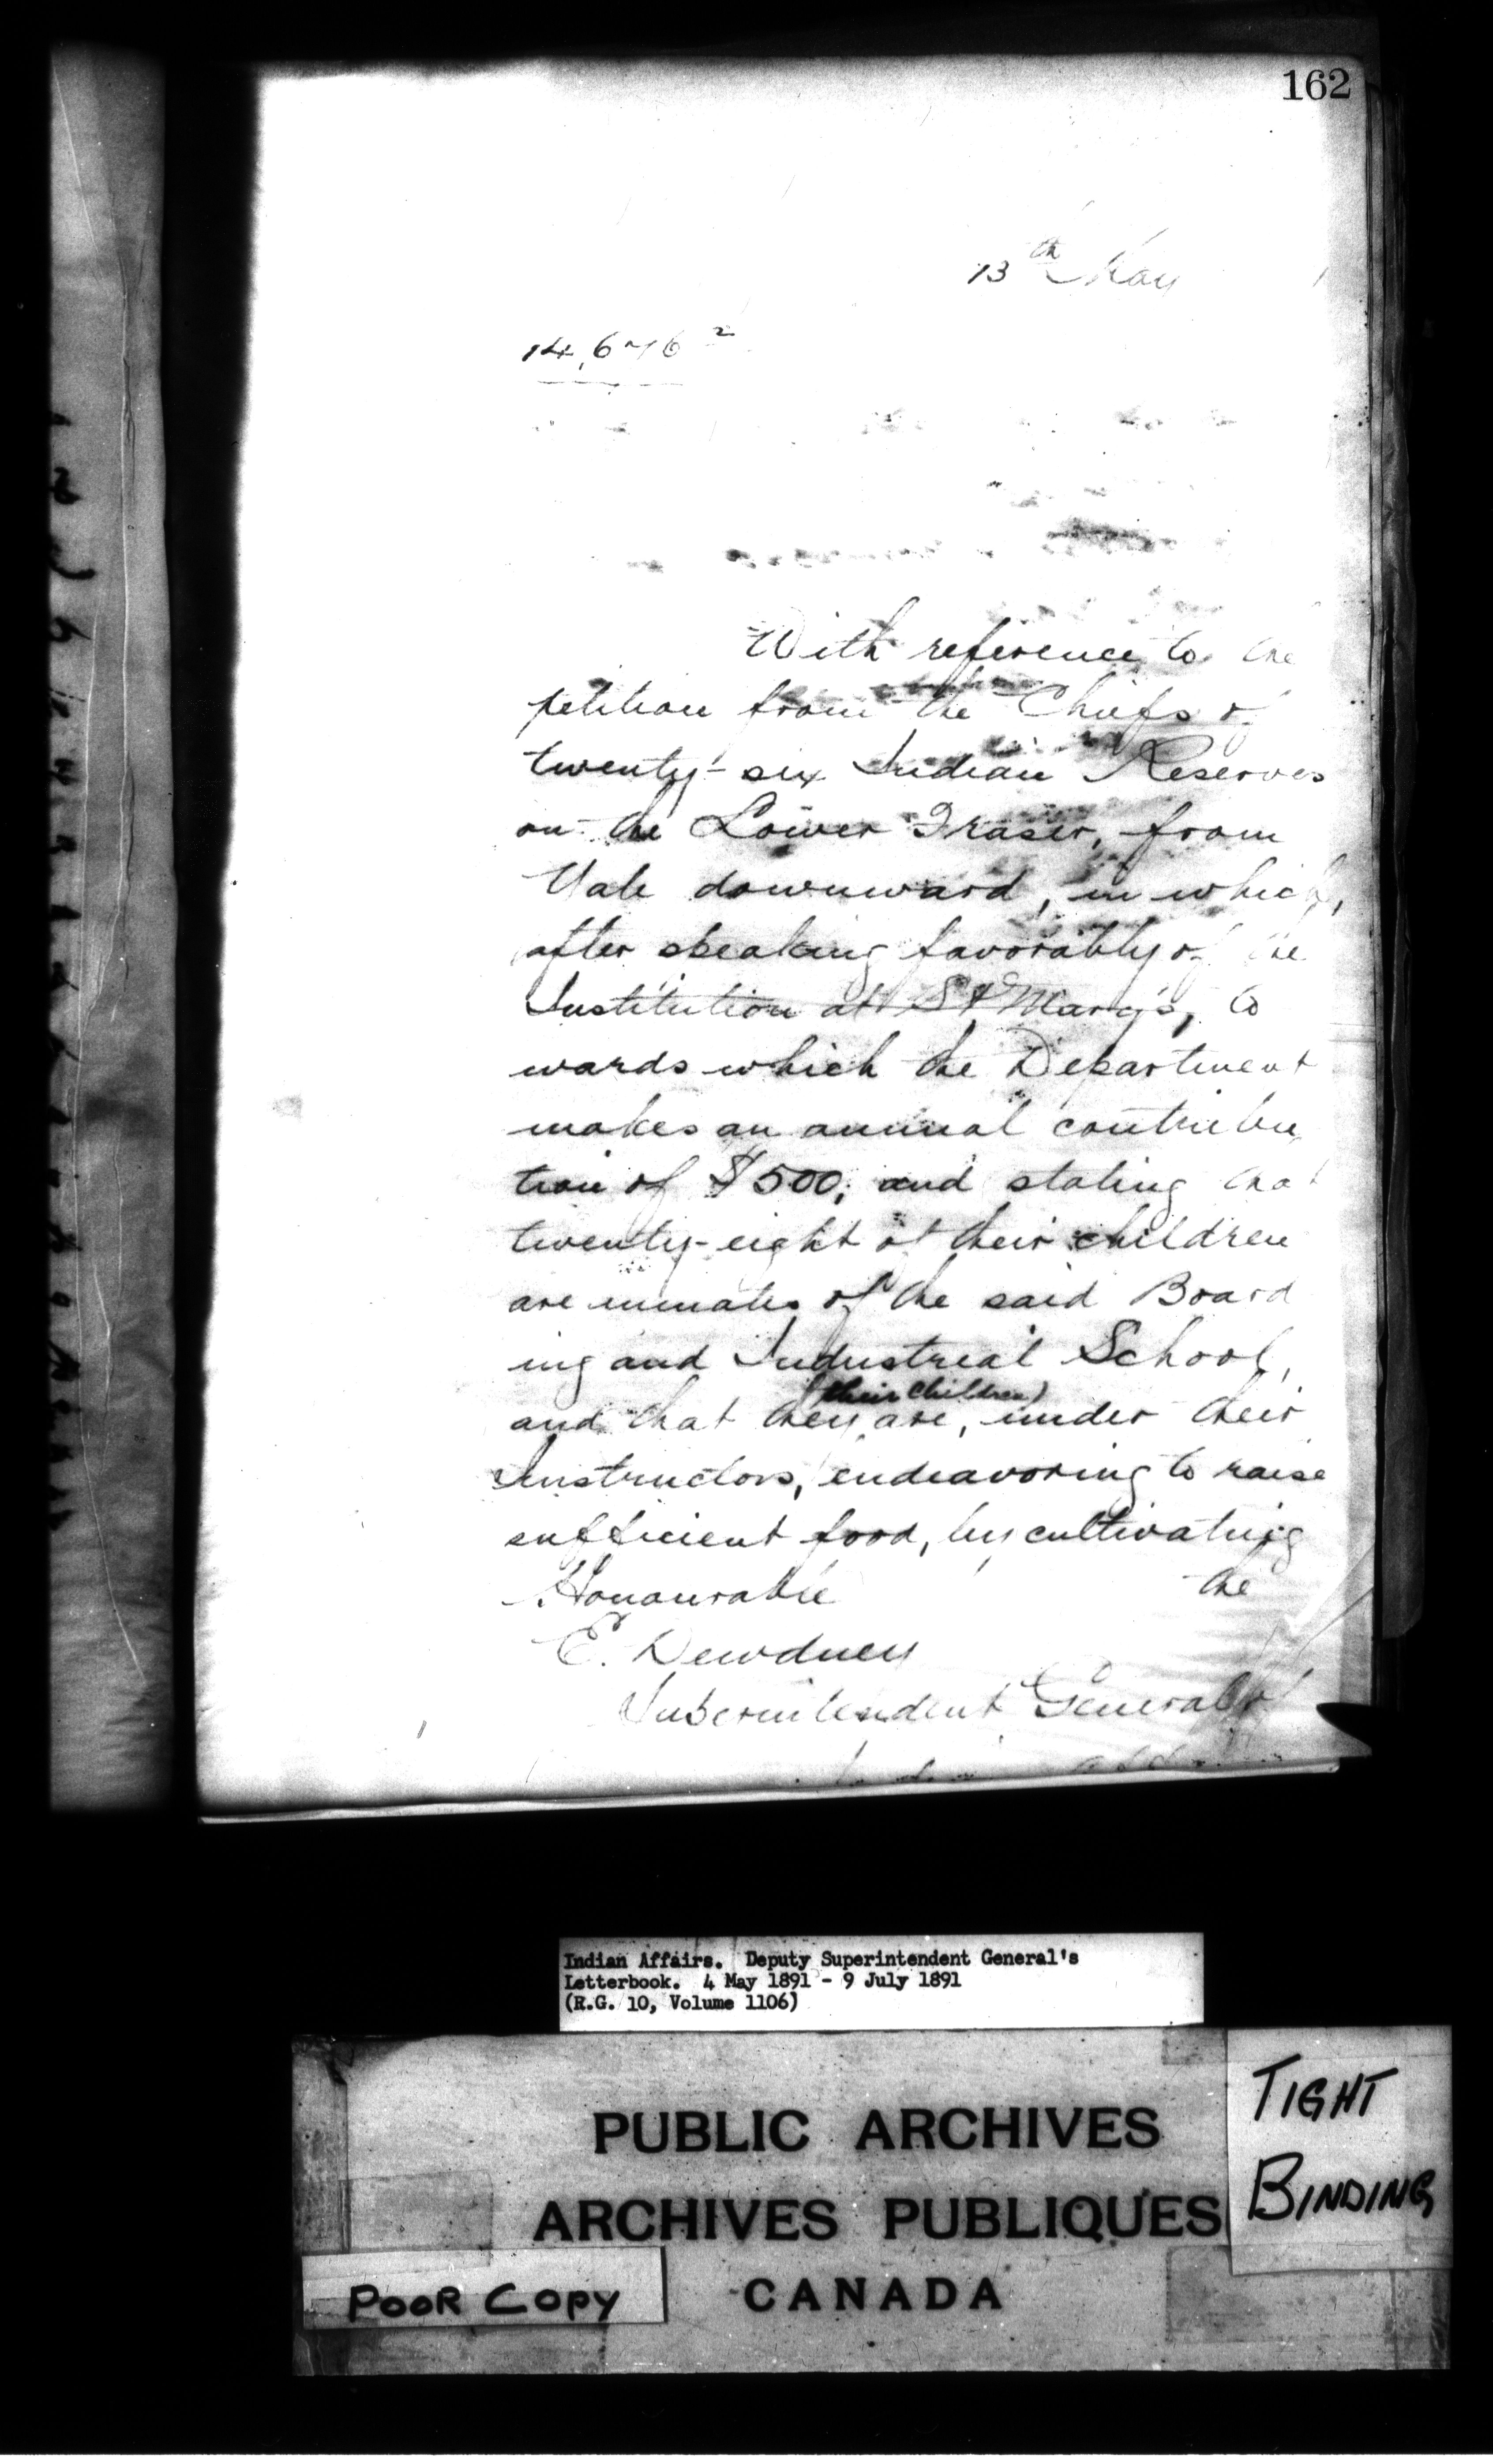 162
13th May
14,676²
With reference to the
petition from the Chiefs of
twenty-six Indian Reserves
on the Lower Fraser, from
Yale downward, in which,
after speaking favorably of the
Institution at St Mary's, to
wards which the Department
makes an annual contribu
tion of $500; and stating that
twenty-eight of their children
are inmates of the said Board
ing and Industrial School,
(their children)
and that they are, under their
Instructors, endeavoring to raise
sufficient food, by cultivating
Honourable the
E. Dewdney
Superintendent General of
Indian Affairs. Deputy Superintendent General's
Letterbook. 4 May 1891 - 9 July 1891
(R.G. 10, Volume 1106)
PUBLIC ARCHIVES
ARCHIVES PUBLIQUES
CANADA
TIGHT
BINDING
POOR COPY